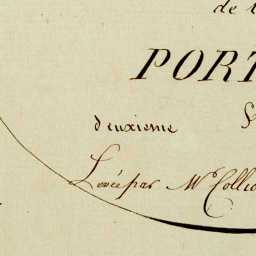 de
PORT
deuxieme
Levée par Mr Collie